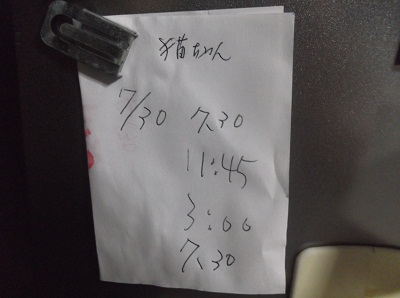 猫ちゃん
7/30 7.30
11:45
3:00
7.30